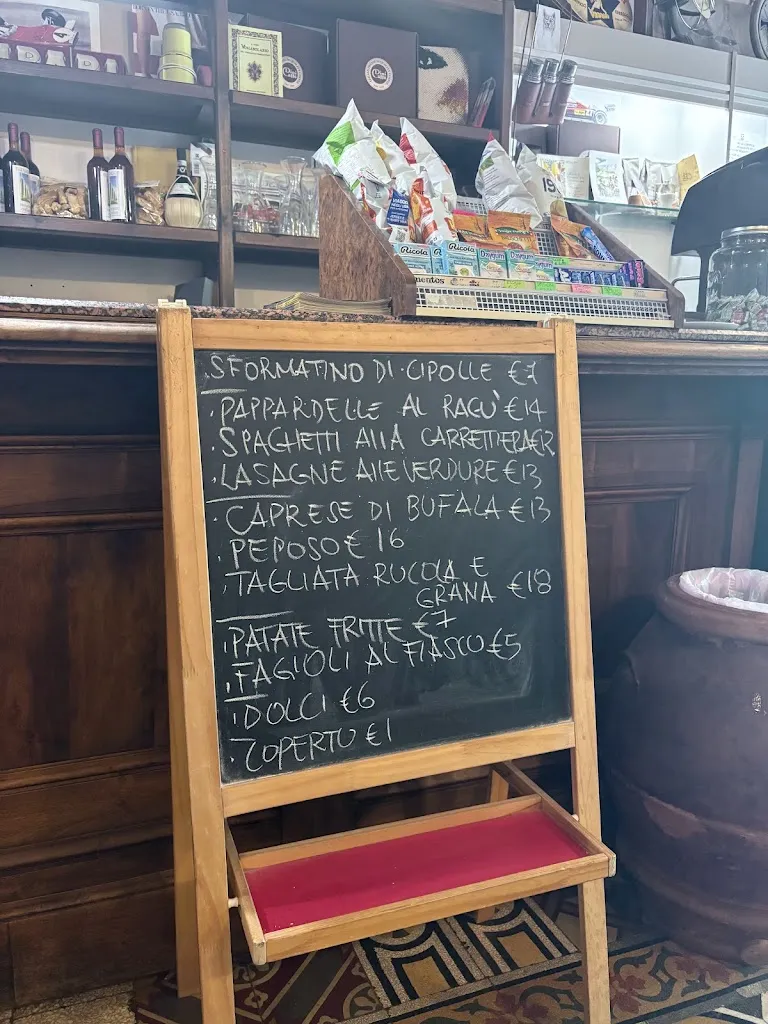 Ricola Ricola Daygum
mentos
.SFORMATINO DI CIPOLLE €7
.PAPPARDELLE AL RAGU' €14
.SPAGHETTI ALLA CARRETTIERA €12
.LASAGNE ALLE VERDURE €13
.CAPRESE DI BUFALA €13
.PEPOSO € 16
.TAGLIATA RUCOLA E
GRANA €18
.PATATE FRITTE €7
.FAGIOLI AL FIASCO €5
.DOLCI €6
.COPERTO €1